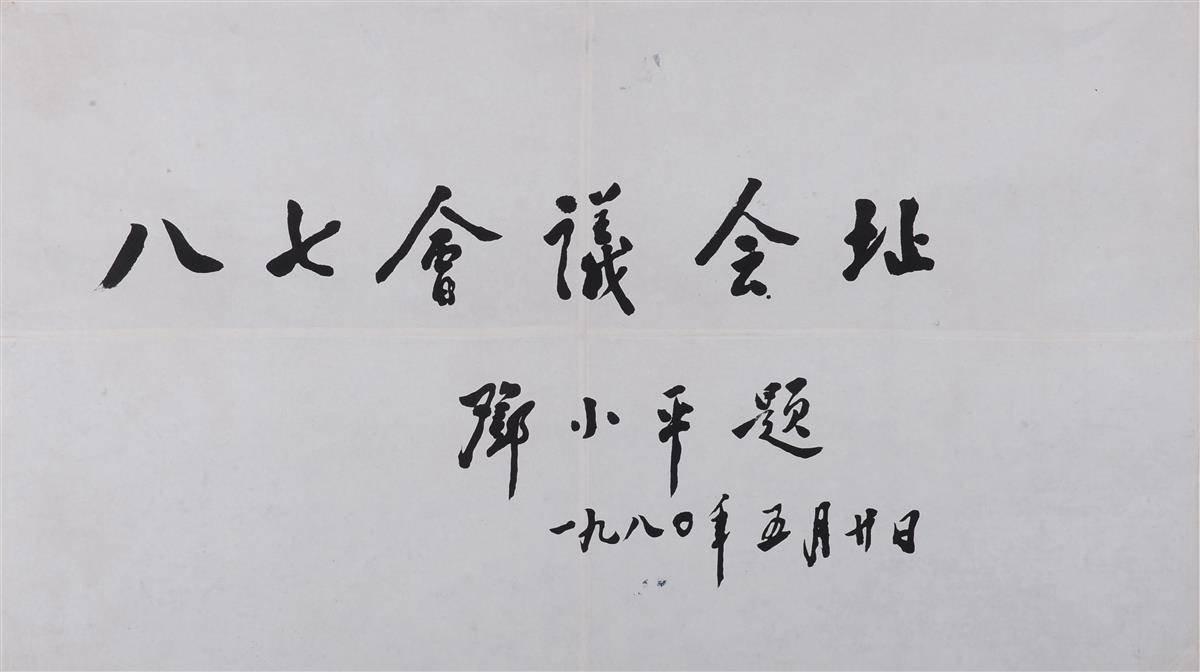 八七會議会址
鄧小平题
一九八〇年五月廿日